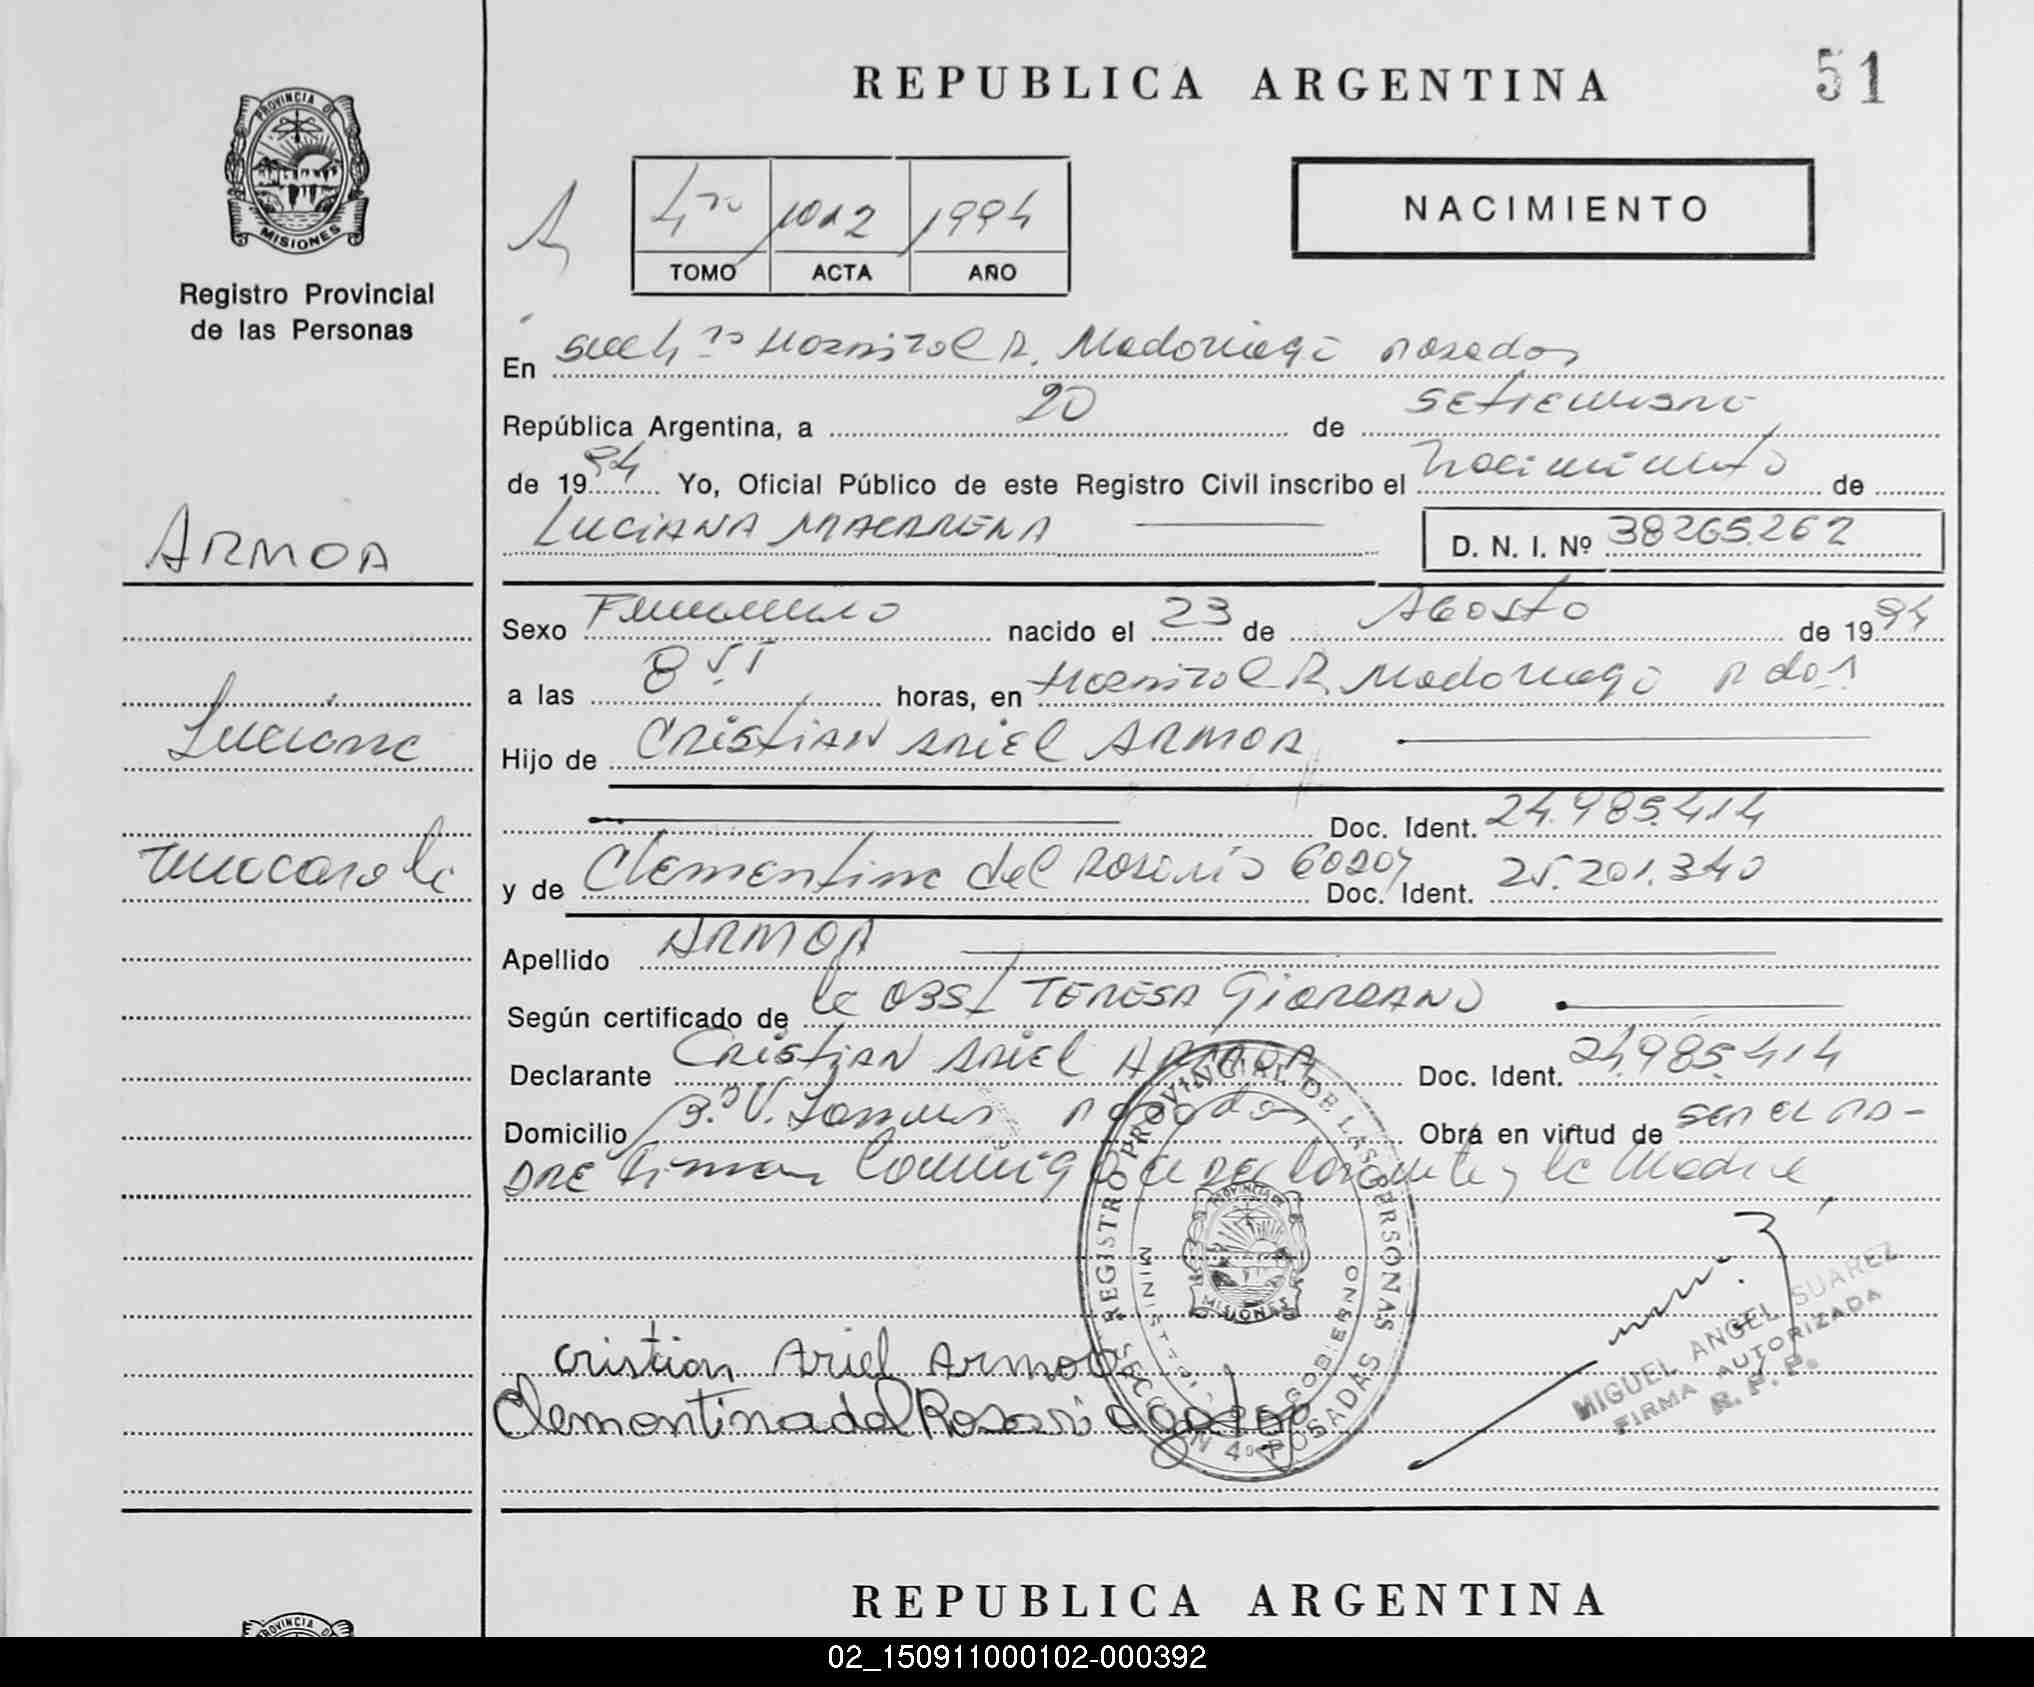 REPUBLICA ARGENTINA
51
PROVINCIA DE
MISIONES
Registro Provincial
de las Personas
4to 1012 1994
TOMO ACTA AÑO
NACIMIENTO
En Secc 4ta Hospital R. Madariaga Posadas
República Argentina, a 20 de Setiembre
de 1994 Yo, Oficial Público de este Registro Civil inscribo el nacimiento de
LUCIANA MACARENA D. N. I. Nº 38265.262
ARMOA
Sexo Femenino nacido el 23 de Agosto de 1994
a las horas, en Hospital R. Madariaga Pdas
Luciana
Hijo de CRISTIAN ARIEL ARMOA
Doc. Ident. 24.985.414
y de Clementina del Rosario Doc. Ident. 25.201.340
Apellido ARMOA
Según certificado de la OBST TERESA GIORDANO
Declarante CRISTIAN ARIEL ARMOA Doc. Ident. 24.985.414
Domicilio Bº V. Posadas Obra en virtud de ser el PA-
DRE Firman conmigo el declarante y la Madre
REGISTRO PROVINCIAL DE LAS PERSONAS
SECCION 4º POSADAS
PROVINCIA DE
MISIONES
cristian Ariel Armoa
Clementina del Rosario
MIGUEL ANGEL SUAREZ
FIRMA AUTORIZADA
R. P. P.
REPUBLICA ARGENTINA
PROVINCIA D
02_150911000102-000392